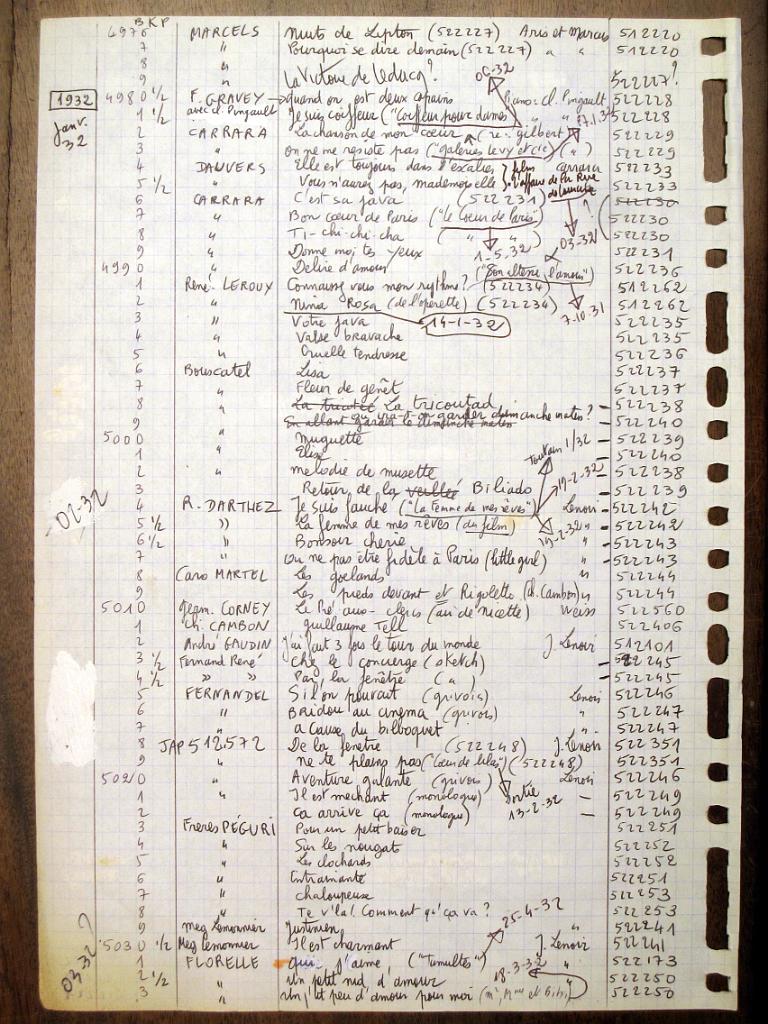 BKP
4976 MARCELS Nuits de Lupton (522227) Aris et Marcus 512220
7 " Pourquoi se dire demain (522227) " " 512220
8 "
9 " La Victoire de Leducq? 522227?
1932 4980 1/2 F. GRAVEY → quand on est deux copains Piano: Cl. Pingault 522228
Janv. 32 1 1/2 avec cl. Pingault Je suis coiffeur ("Coiffeur pour dames" " " 522228
06-32
2 CARRARA La chanson de mon cœur (re: gilbert) 522229
3 " on ne me resiste pas ("galeries levy et cie") (") 522229
4 DAUVERS Elle est toujours dans l'escalier } film Carrara 522233
5 1/2 " Vous n'aurez pas, mademoiselle } 522233
6 CARRARA C'est sa java (522231) 522230
7 " Bon cœur de Paris ("le Cœur de Paris") 522230
8 " Ti-chi-chi-cha ( " " ) 03-32 522230
9 " Donne moi tes yeux 1-5-32 522231
4990 " Delire d'amour 522236
1 René LEROUY Connaissez vous mon rythme? (522234) 512262
2 " Nina Rosa (de l'operette) (522234) 7-10-31 512262
3 " Votre java 14-1-32 522235
4 " Valse bravache 522235
5 " Cruelle tendresse 522236
6 Bouscatel Lisa 522237
7 " Fleur de genêt 522237
8 " La tricotad La tricoutad 522238
9 qu'ira-t-on garder dimanche maten? 522240
En allant garder le dimanche maten
5000 " Muguette 522239
1 " Elise toutain 1/32 522240
2 " melodie de musette 19-2-32 522238
3 Retour de la veilleé Biliado 522239
02-32 4 R. DARTHEZ Je suis fauché ("La femme de mes rêves") Lenoir 522242
5 1/2 " La femme de mes rêves (du film) " 522242
6 1/2 " Bonsoir cherie 19-2-32 " 522243
7 " Ou ne pas être fidèle à Paris (little girl) " 522243
8 Caro MARTEL Les goelands " 522244
9 Les pieds devant et Rigoletto (Ch. Cambon) " 522244
5010 Germ. CORNEY Le Pré aux-clercs (air de nicette) Weiss 522560
1 Ch. CAMBON guillaume Tell 522406
2 André GAUDIN J'ai fait 3 fois le tour du monde J. Lenoir 512101
3 1/2 Fernand René Chez le concierge (sketch) 522245
4 1/2 " " Par la fenêtre ( " ) 522245
5 FERNANDEL Si l'on pouvait (grivois) Lenoir 522246
6 " Bridou au cinema (grivois) " 522247
7 " a cause du bilboquet " 522247
8 JAP 512.572 De la fenetre (522248) J. Lenoir 522351
9 " ne te plains pas ("Cœur de lilas") (522248) 522351
5020 " Aventure galante (grivois) Lenoir 522246
1 " Il est mechant (monologue) Sortie 522249
2 " ca arrive ça (monologue) 13-2-32 522249
3 Freres PÉGURI Pour un petit baiser 522251
4 " Sur les nougat 522252
5 " Les clochards 522252
6 " Entrainante 522251
7 " chaloupeuse 522253
8 " Te v'la! Comment qu'ça va? 522253
03-32? 9 Meg Lemonnier Justinien 25-4-32 " 522241
5030 1/2 Meg Lemonnier Il est charmant J. Lenoir 522241
1 FLORELLE qui j'aime, ("Tumultes") " 522173
2 1/2 " Un petit nid, d'amour 18-3-32 " 522250
3 " Un p'tit peu d'amour pour moi (Mr, Mme et Bibi) 522250